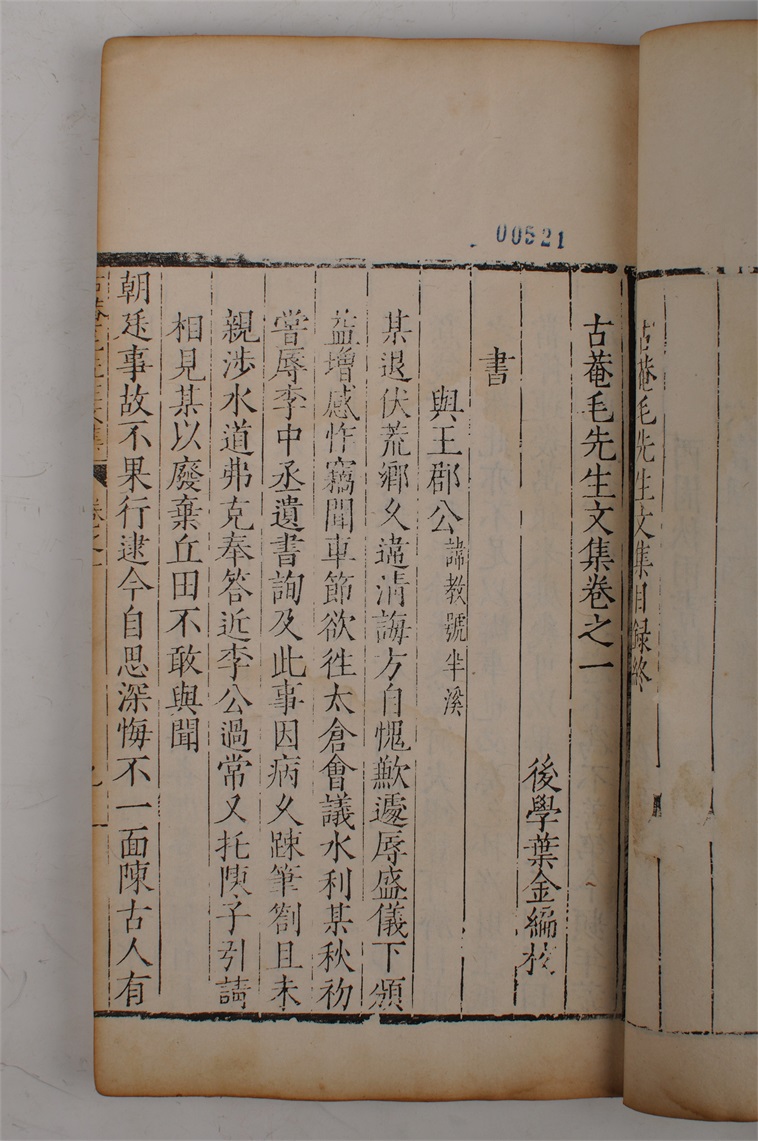 00521
古菴毛先生文集目錄終
古菴毛先生文集卷之一
後學葉金編校
書
與王郡公諱教號半溪
某退伏荒鄉久違清誨方自愧歉遽辱盛儀下頒
益增感怍竊聞車節欲徃太倉會議水利某秋初
嘗辱李中丞遺書詢及此事因病久踈筆劄且未
親涉水道弗克奉答近李公過常又托陳子引請
相見某以廢棄丘田不敢與聞
朝廷事故不果行逮今自思深悔不一面陳古人有